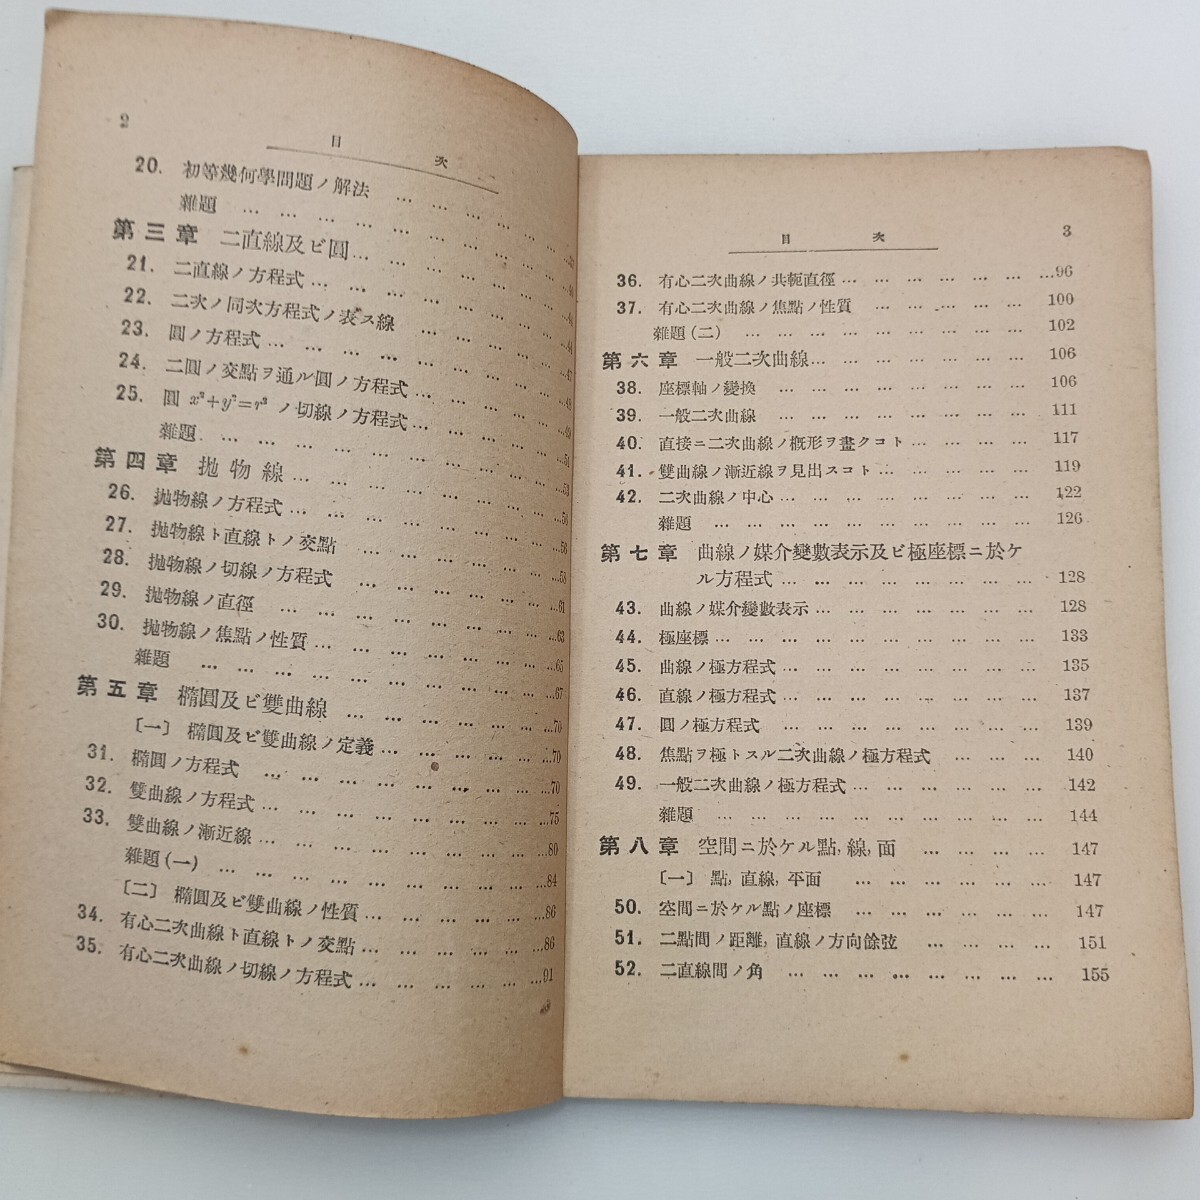 2
目 次
20. 初等幾何學問題ノ解法 … … … … …
雜題 … … … … … … … … …
第三章 二直線及ビ圓 … … … … … …
21. 二直線ノ方程式 … … … … … … …
22. 二次ノ同次方程式ノ表ス線 … … … …
23. 圓ノ方程式 … … … … … … … …
24. 二圓ノ交點ヲ通ル圓ノ方程式 … … … …
25. 圓 x²+y²=r² ノ切線ノ方程式 … … … …
雜題 … … … … … … … … … …51
第四章 拋物線 … … … … … … … …53
26. 拋物線ノ方程式 … … … … … … …
27. 拋物線ト直線トノ交點 … … … … … …56
28. 拋物線ノ切線ノ方程式 … … … … … …58
29. 拋物線ノ直徑 … … … … … … … …61
30. 拋物線ノ焦點ノ性質 … … … … … … …63
雜題 … … … … … … … … … …65
第五章 橢圓及ビ雙曲線 … … … … … …70
〔一〕 橢圓及ビ雙曲線ノ定義 … … … … …70
31. 橢圓ノ方程式 … … … … … … … …70
32. 雙曲線ノ方程式 … … … … … … … …75
33. 雙曲線ノ漸近線 … … … … … … … …80
雜題 (一) … … … … … … … … …84
〔二〕 橢圓及ビ雙曲線ノ性質 … … … … …86
34. 有心二次曲線ト直線トノ交點 … … … … …86
35. 有心二次曲線ノ切線ノ方程式 … … … … …91
目 次
3
36. 有心二次曲線ノ共軛直徑 … … … … … … …96
37. 有心二次曲線ノ焦點ノ性質 … … … … … 100
雜題 (二) … … … … … … … … 102
第六章 一般二次曲線 … … … … … … … 106
38. 座標軸ノ變換 … … … … … … … … 106
39. 一般二次曲線 … … … … … … … … 111
40. 直接ニ二次曲線ノ槪形ヲ畫クコト … … … … 117
41. 雙曲線ノ漸近線ヲ見出スコト … … … … … 119
42. 二次曲線ノ中心 … … … … … … … … 122
雜題 … … … … … … … … … … 126
第七章 曲線ノ媒介變數表示及ビ極座標ニ於ケ
ル方程式 … … … … … … … … 128
43. 曲線ノ媒介變數表示 … … … … … … … 128
44. 極座標 … … … … … … … … … … 133
45. 曲線ノ極方程式 … … … … … … … … 135
46. 直線ノ極方程式 … … … … … … … … 137
47. 圓ノ極方程式 … … … … … … … … 139
48. 焦點ヲ極トスル二次曲線ノ極方程式 … … … 140
49. 一般二次曲線ノ極方程式 … … … … … … 142
雜題 … … … … … … … … … … 144
第八章 空間ニ於ケル點, 線, 面 … … … … 147
〔一〕 點, 直線, 平面 … … … … … … 147
50. 空間ニ於ケル點ノ座標 … … … … … … 147
51. 二點間ノ距離, 直線ノ方向餘弦 … … … … 151
52. 二直線間ノ角 … … … … … … … … 155